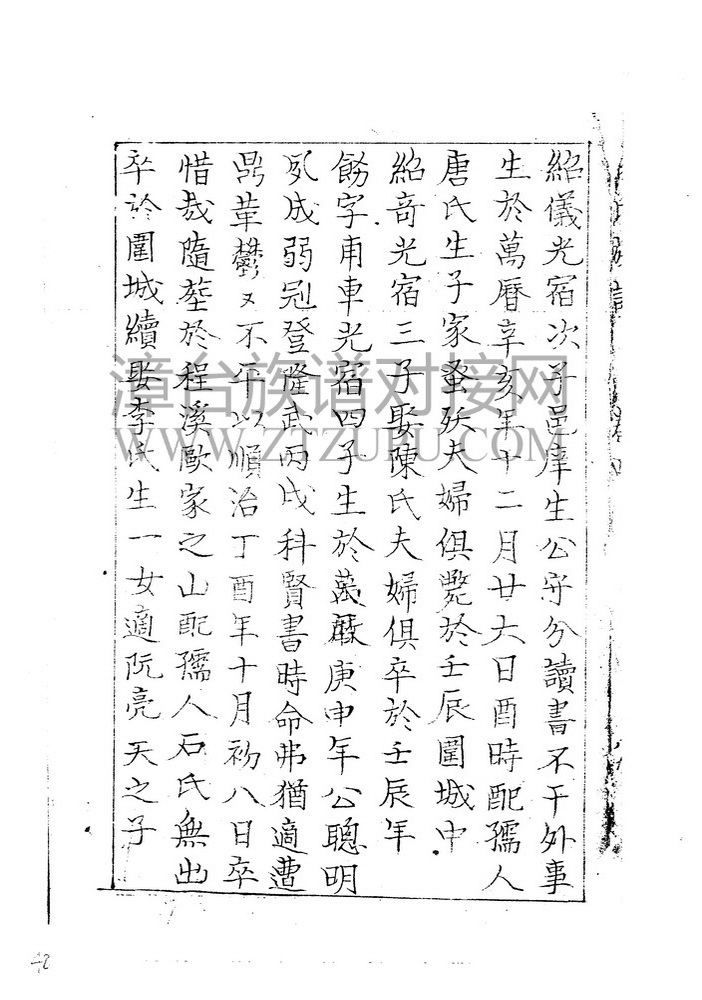 紹儀光宿次子邑庠生公守分讀書不干外事
生於萬曆辛亥年十二月廿六日酉時配孺人
唐氏生子家蚤殀夫婦俱斃於壬辰圍城中
紹奇光宿三子娶陳氏夫婦俱卒於壬辰年
字甫車光宿四子生於萬曆庚申年公聰明
夙成弱冠登隆武丙戌科賢書時命弗猶適遭
鼎革鬱〻不平以順治丁酉年十月初八日卒
惜哉隨塟於程溪歐家之山配孺人石氏無出
卒於圍城續娶李氏生一女適阮亮天之子
漳台族谱对接网
WWW.ZTZUPU.COM
42